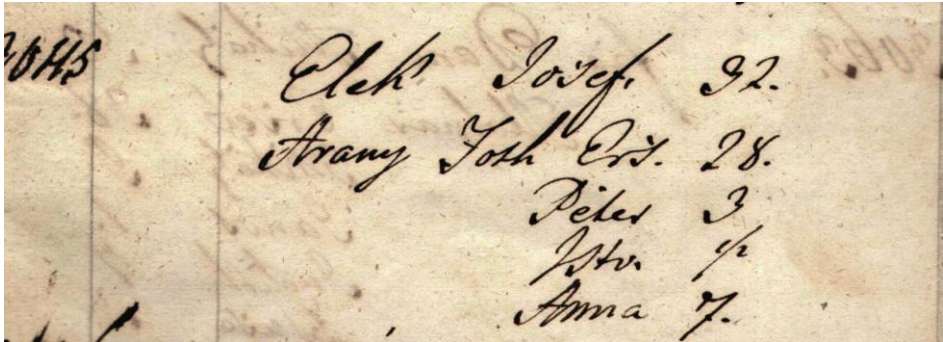 Elek Josef. 32.
Arany Toth Ers. 28.
Péter 3
Istv.
Anna 7.